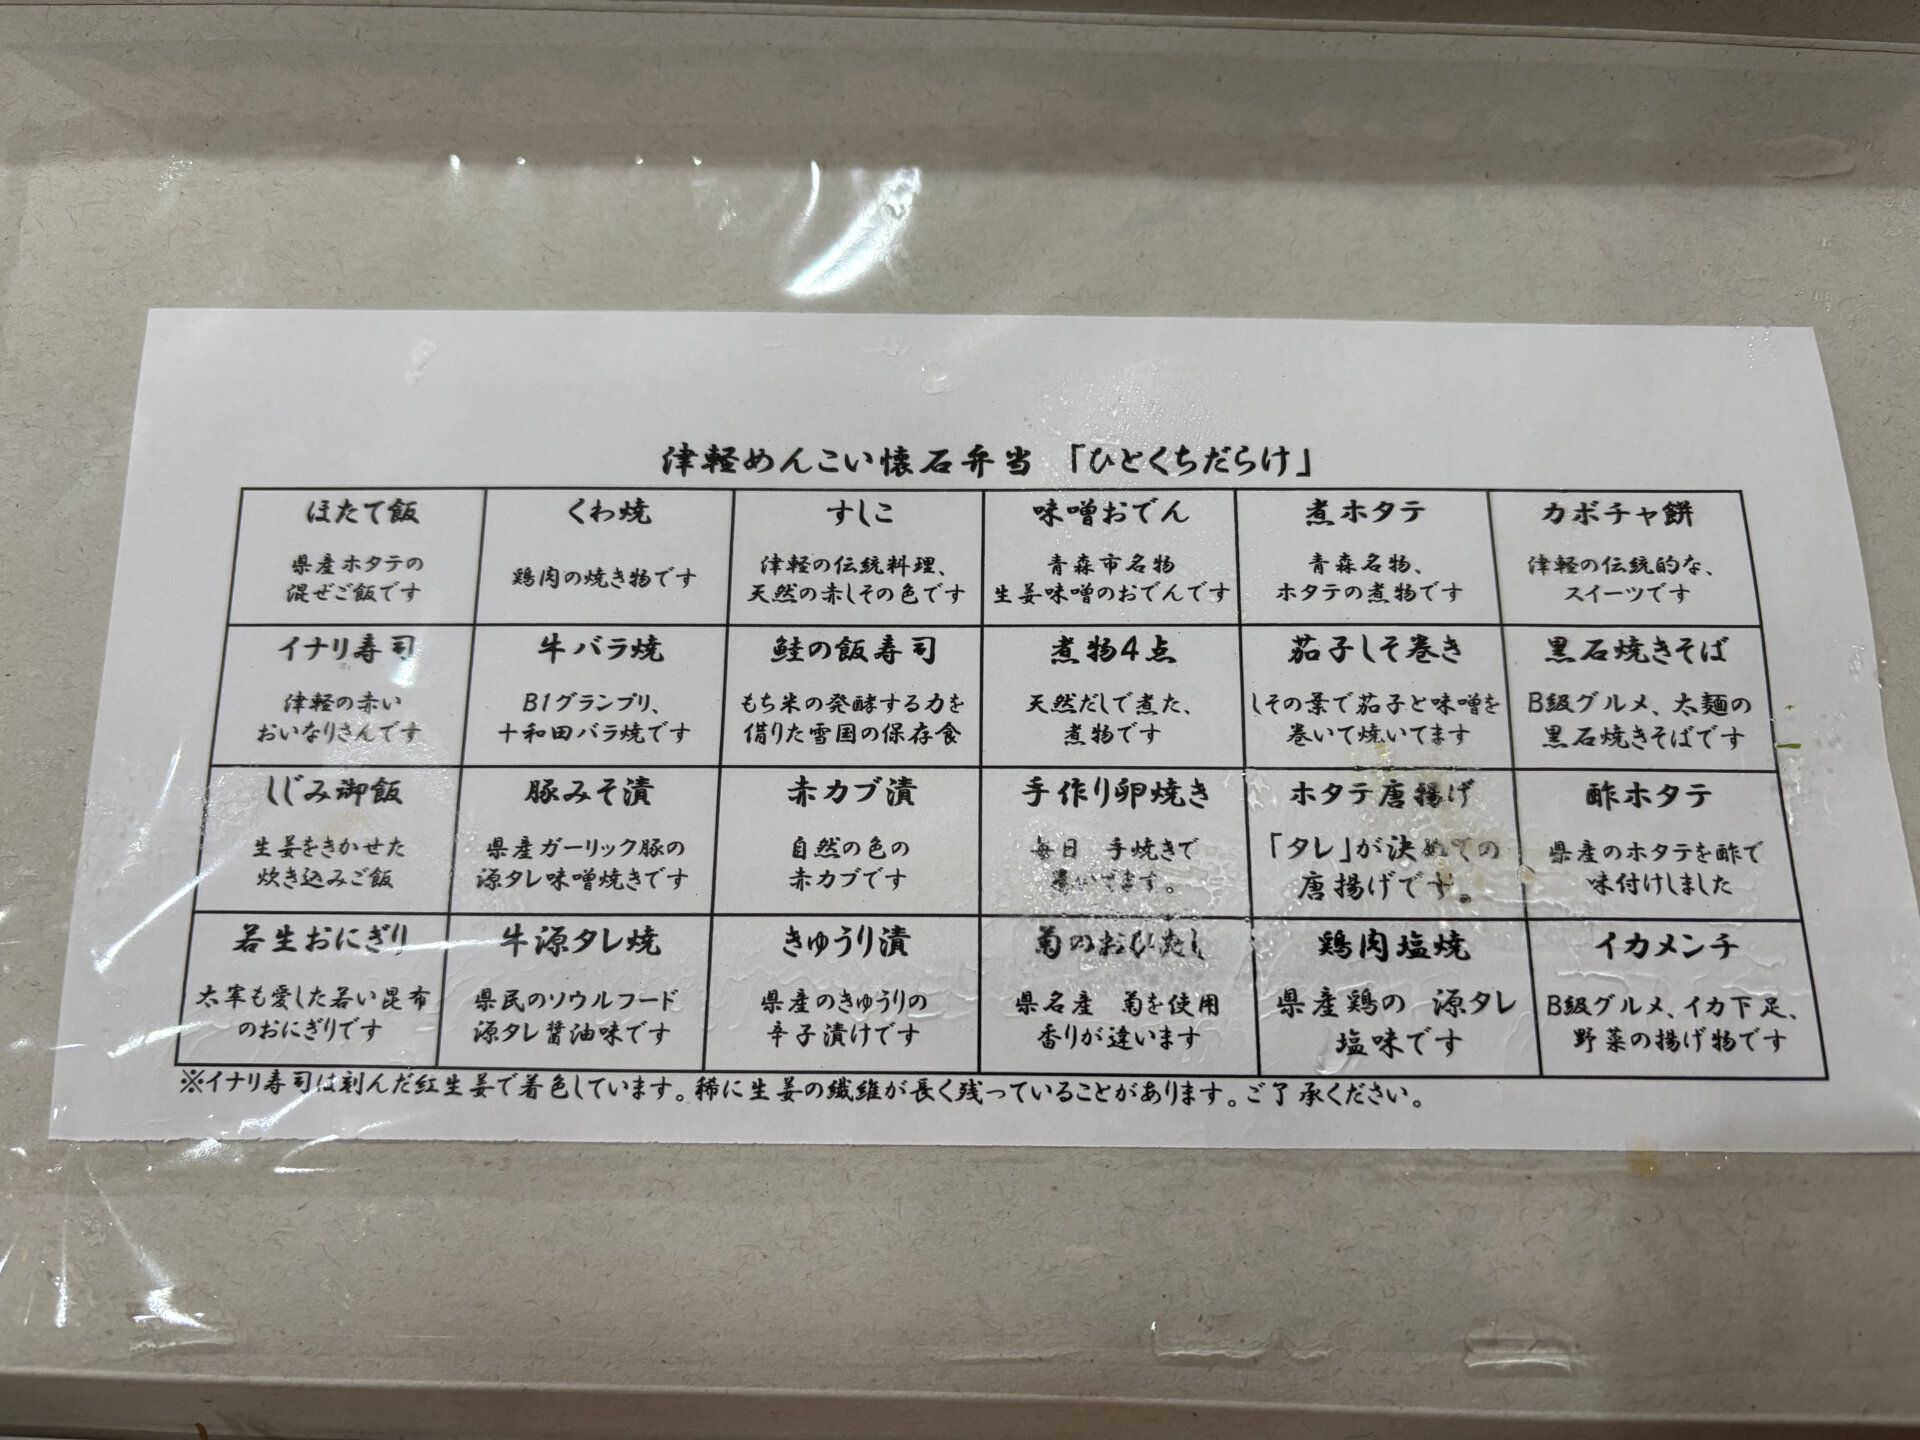 津軽めんこい懐石弁当 「ひとくちだらけ」
ほたて飯
県産ホタテの
混ぜご飯です
くわ焼
鶏肉の焼き物です
すしこ
津軽の伝統料理、
天然の赤しその色です
味噌おでん
青森市名物
生姜味噌のおでんです
煮ホタテ
青森名物、
ホタテの煮物です
カボチャ餅
津軽の伝統的な、
スイーツです
イナリ寿司
津軽の赤い
おいなりさんです
牛バラ焼
B1グランプリ、
十和田バラ焼です
鮭の飯寿司
もち米の発酵する力を
借りた雪国の保存食
煮物4点
天然だしで煮た、
煮物です
茄子しそ巻き
しその葉で茄子と味噌を
巻いて焼いてます
黒石焼きそば
B級グルメ、太麺の
黒石焼きそばです
しじみ御飯
生姜をきかせた
炊き込みご飯
豚みそ漬
県産ガーリック豚の
源タレ味噌焼きです
赤カブ漬
自然の色の
赤カブです
手作り卵焼き
毎日 手焼きで
ます。
ホタテ唐揚げ
「タレ」が決めての
唐揚げです。
酢ホタテ
県産のホタテを酢で
味付けしました
若生おにぎり
太宰も愛した若い昆布
のおにぎりです
牛源タレ焼
県民のソウルフード
源タレ醤油味です
きゅうり漬
県産のきゅうりの
辛子漬けです
菊のおひたし
県名産 菊を使用
香りが違います
鶏肉塩焼
県産鶏の 源タレ
塩味です
イカメンチ
B級グルメ、イカ下足、
野菜の揚げ物です
※イナリ寿司は刻んだ紅生姜で着色しています。稀に生姜の繊維が長く残っていることがあります。ご了承ください。